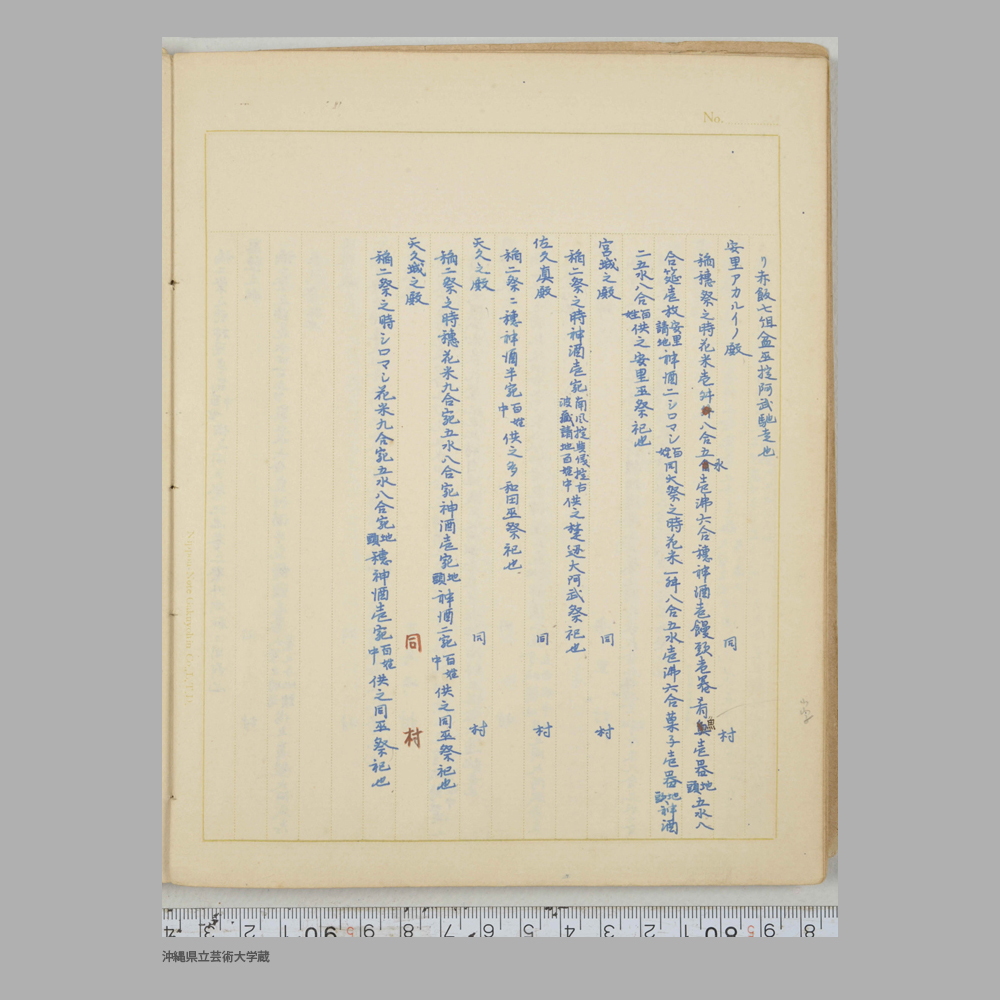 No.
リ赤飯七俎盆巫掟阿武馳走也
安里アカルイノ殿 同村
稲穂祭之時花米壱舛八合五水壱沸六合穂神酒壱饅頭壱器肴壱器地頭五水八
合筵壱枚安里請地神酒ニシロマシ百姓同大祭之時花米一舛八合五水壱沸六合菓子壱器地頭神酒
二五水八合百姓供之安里巫祭祀也
宮城之殿 同村
稲二祭之時神酒壱宛南風掟与儀掟古波蔵請地百姓中供之楚辺大阿武祭祀也
佐久真殿 同村
稲二祭ニ穂神酒半宛百姓中供之多和田巫祭祀也
天久之殿 同村
稲二祭之時穂花米九合宛五水八合宛神酒壱宛地頭神酒二宛百姓中供之同巫祭祀也
天久城之殿 同村
稲二祭之時シロマシ花米九合宛五水八合宛地頭穂神酒壱宛百姓中供之同巫祭祀也
沖縄県立芸術大学蔵